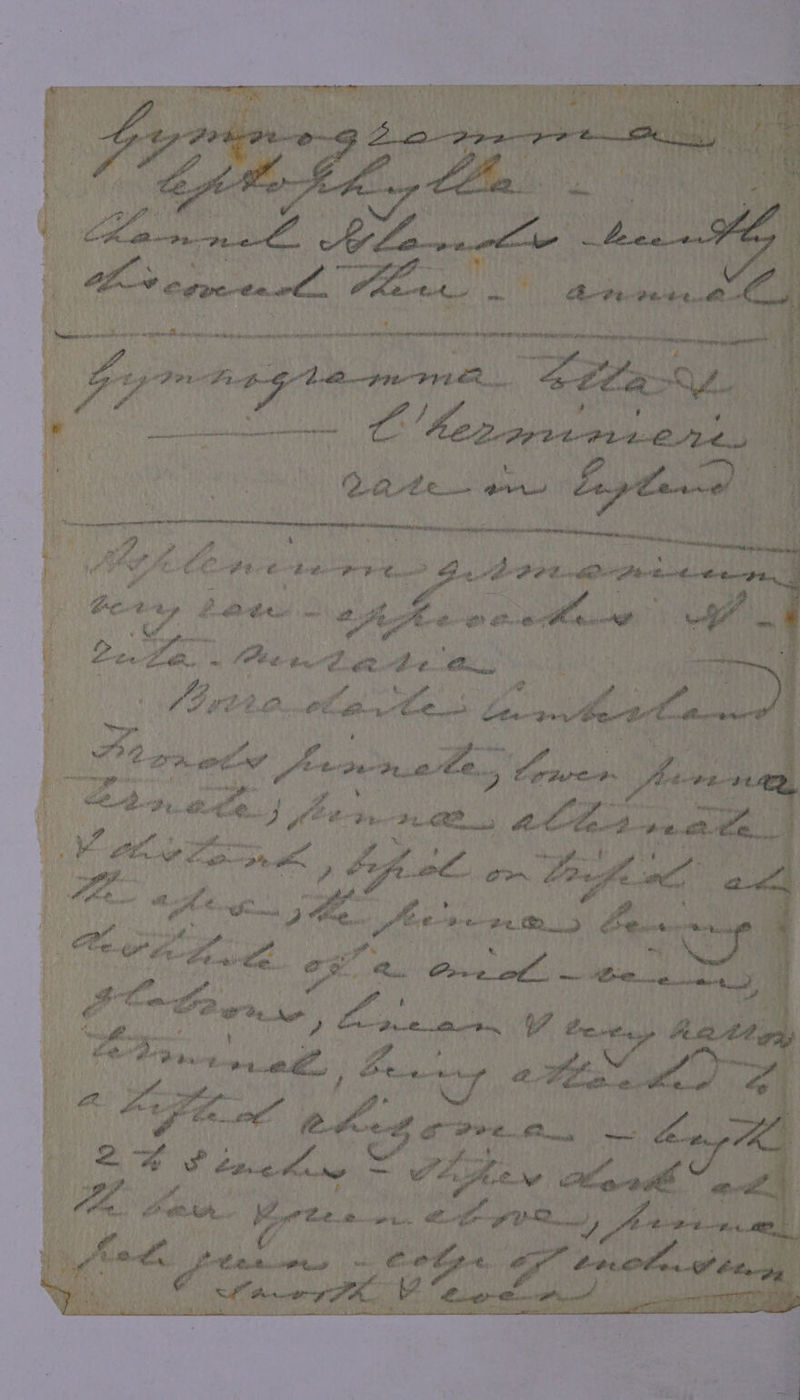 Gymnogramma
leptophylla -
Channel Islands recently
discovered there - annual
Gymnogramma totta &
l'herminieri
rare in England
Asplenium germanicum
very rare - approaches A -
Ruta - Muraria
Borrodaile Cumberland
Fronds pinnate, lower pinnæ
ternate; pinnæ alternate
& distant, bifid or trifid at
the apex, the pinnæ being
destitute of a mid - vein,
glabrous, linear & very narrow
terminal, being attached to
a tufted rhizoma - length
2 to 8 inches - stipes dark at
the base & green above, pinnæ
pale green - edge of indusium
smooth & even